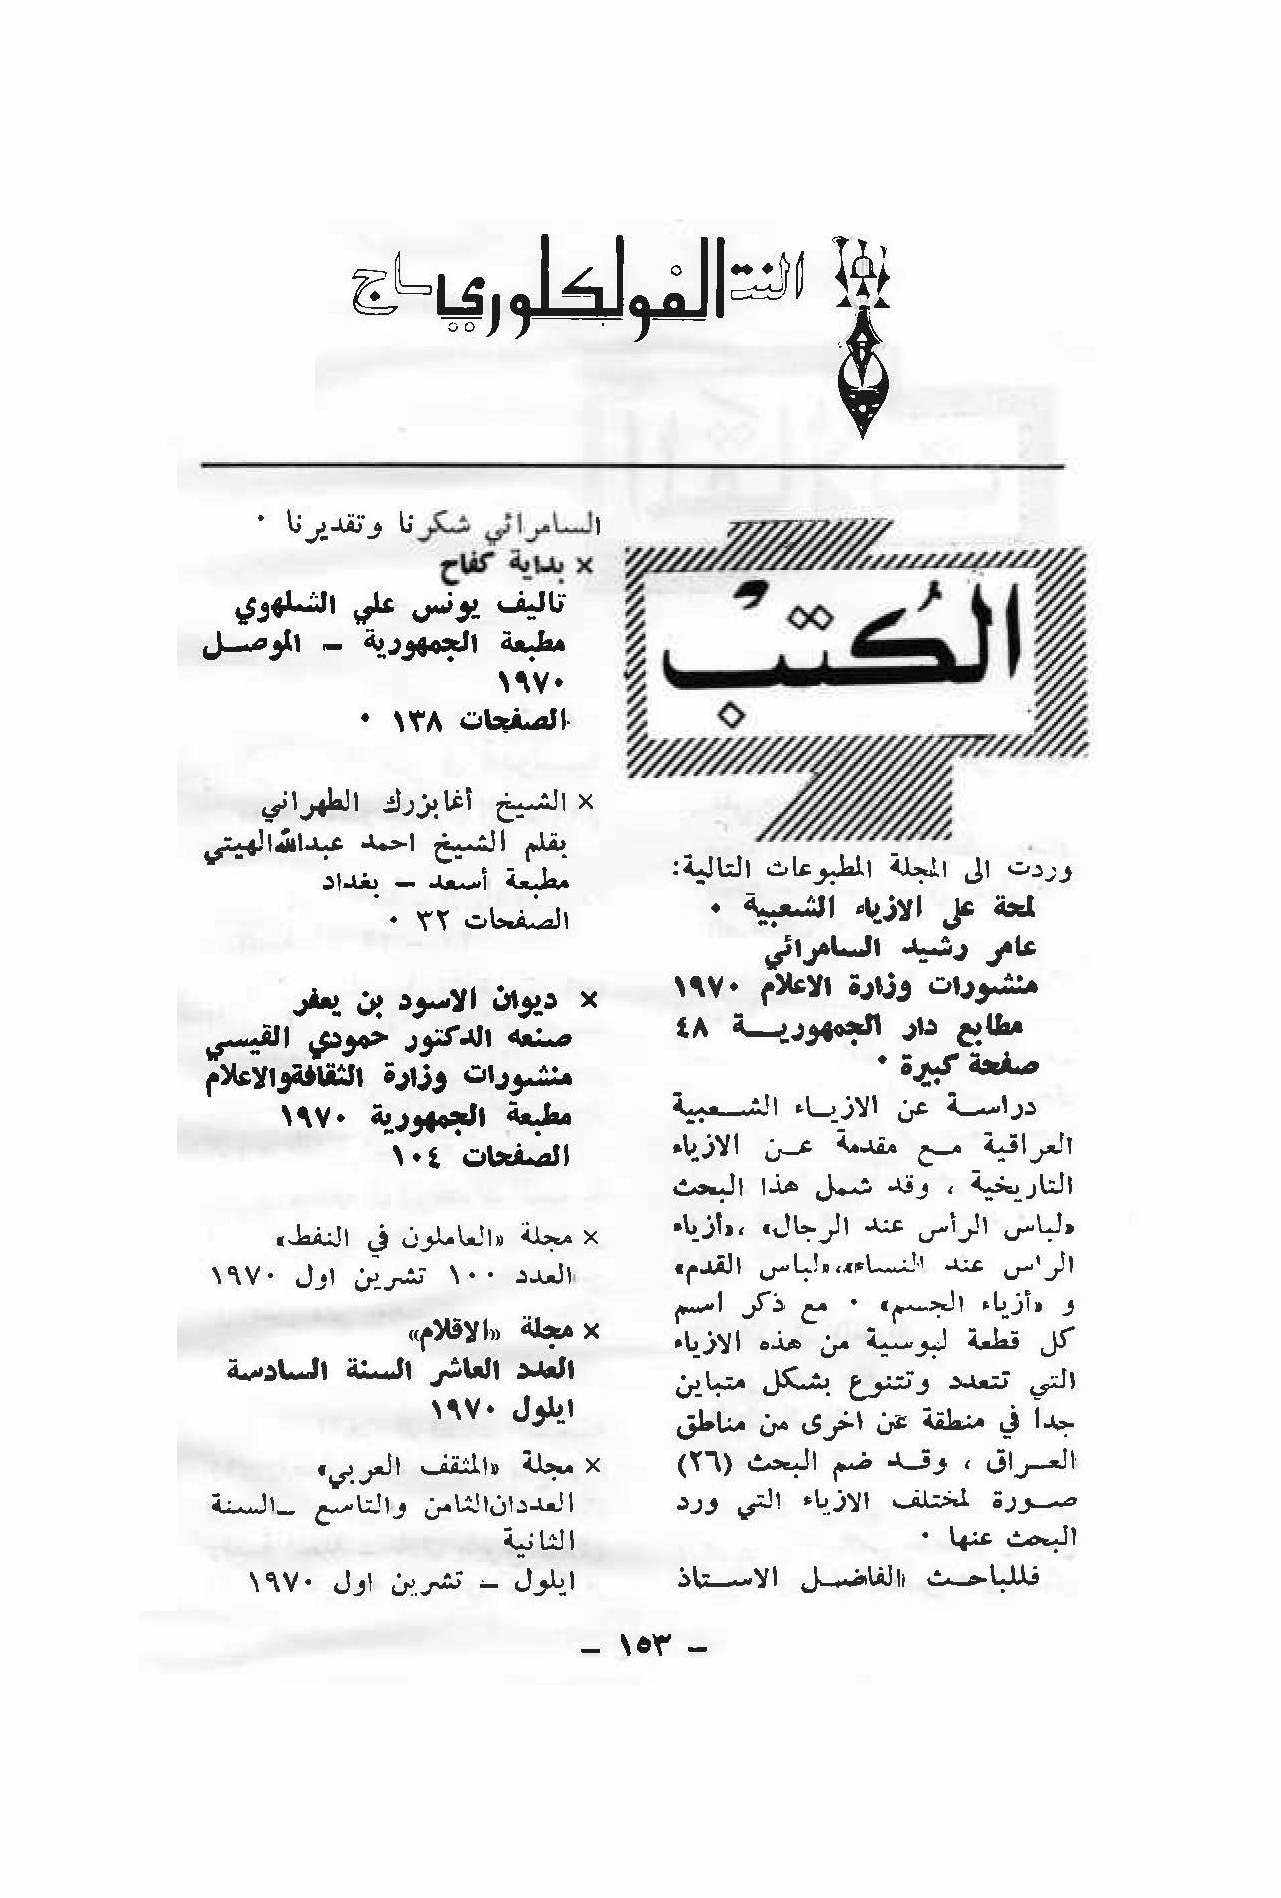 النتاج الفولكلوري
الكُتبْ
وردت الى المجلة المطبوعات التالية:
لمحة على الازياء الشعبية ٠
عامر رشيد السامرائي
منشورات وزارة الاعلام ١٩٧٠
مطابع دار الجمهورية ٤٨
صفحة كبيرة ٠
دراسة عن الازياء الشعبية
العراقية مع مقدمة عن الازياء
التاريخية ، وقد شمل هذا البحث
«لباس الرأس عند الرجال» ،«أزياء
الراس عند النساء»،«لباس القدم»
و «أزياء الجسم» ٠ مع ذكر اسم
كل قطعة لبوسية من هذه الازياء
التي تتعدد وتتنوع بشكل متباين
جدا في منطقة عن اخرى من مناطق
العراق ، وقد ضم البحث (٢٦)
صورة لمختلف الازياء التي ورد
البحث عنها ٠
فللباحث الفاضل الاستاذ
السامرائي شكرنا وتقديرنا ٠
× بداية كفاح
تاليف يونس علي الشلهوي
مطبعة الجمهورية – الموصل
١٩٧٠
الصفحات ١٣٨ ٠
× الشيخ أغابزرك الطهراني
بقلم الشيخ احمد عبدالله الهيتي
مطبعة أسعد – بغداد
الصفحات ٣٢ ٠
× ديوان الاسود بن يعفر
صنعه الدكتور حمودي القيسي
منشورات وزارة الثقافة والاعلام
مطبعة الجمهورية ١٩٧٠
الصفحات ١٠٤
× مجلة «العاملون في النفط»
العدد ١٠٠ تشرين اول ١٩٧٠
× مجلة «الاقلام»
العدد العاشر السنة السادسة
ايلول ١٩٧٠
× مجلة «المثقف العربي»
العددان الثامن والتاسع –السنة
الثانية
ايلول – تشرين اول ١٩٧٠
– ١٥٣ –